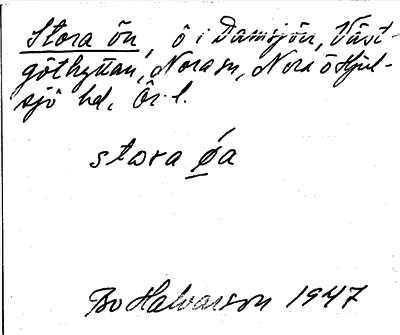 Stora ön, ö i Dammsjön, Väst-
göthyttan, Nora sn, Nora o Hjul-
sjö hd, Ör. l.
stora øa
Bo Halvarson 1947